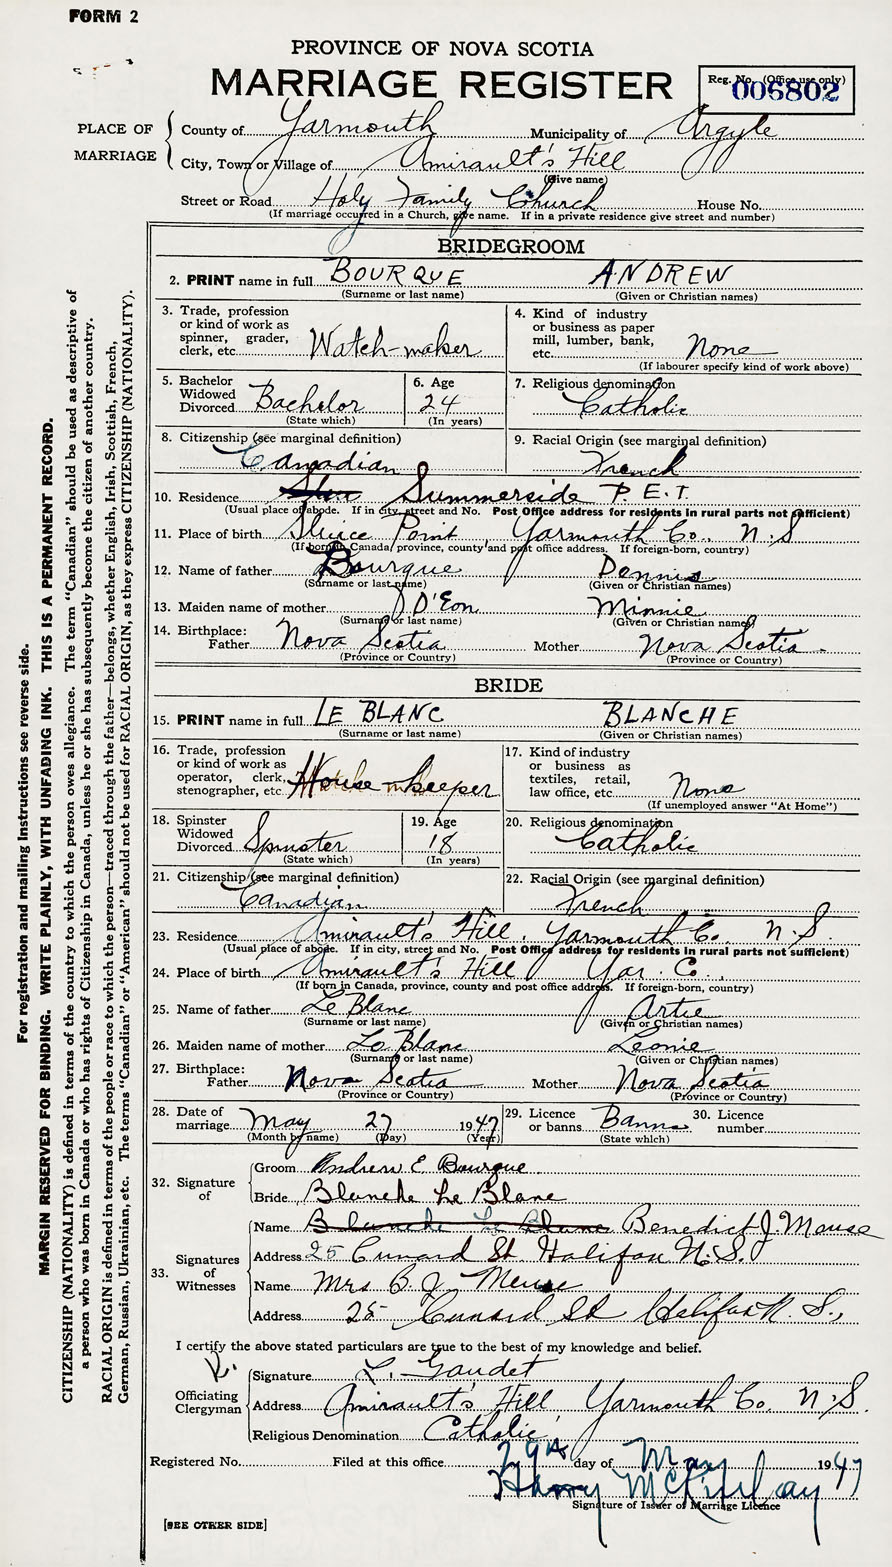 FORM 2
PROVINCE OF NOVA SCOTIA
MARRIAGE REGISTER
Reg. No. (Office use only)
006802
PLACE OF MARRIAGE
County of Yarmouth Municipality of Argyle
City, Town or Village of Amirault's Hill
(Give name)
Street or Road Holy Family Church House No.
(If marriage occurred in a Church, give name. If in a private residence give street and number)
BRIDEGROOM
2. PRINT name in full BOURQUE ANDREW
(Surname or last name) (Given or Christian names)
3. Trade, profession or kind of work as spinner, grader, clerk, etc. Watch-maker
4. Kind of industry or business as paper mill, lumber, bank, etc. None
(If labourer specify kind of work above)
5. Bachelor Widowed Divorced Bachelor
(State which)
6. Age 24
(In years)
7. Religious denomination Catholic
8. Citizenship (see marginal definition) Canadian
9. Racial Origin (see marginal definition) French
10. Residence Summerside P.E.I.
(Usual place of abode. If in city, street and No. Post Office address for residents in rural parts not sufficient)
11. Place of birth Sluice Point, Yarmouth Co., N.S
(If born in Canada, province, county and post office address. If foreign-born, country)
12. Name of father Bourque Dennis
(Surname or last name) (Given or Christian names)
13. Maiden name of mother D'Eon Minnie
(Surname or last name) (Given or Christian names)
14. Birthplace: Father Nova Scotia Mother Nova Scotia
(Province or Country) (Province or Country)
BRIDE
15. PRINT name in full LE BLANC BLANCHE
(Surname or last name) (Given or Christian names)
16. Trade, profession or kind of work as operator, clerk, stenographer, etc. House-keeper
17. Kind of industry or business as textiles, retail, law office, etc. None
(If unemployed answer "At Home")
18. Spinster Widowed Divorced Spinster
(State which)
19. Age 18
(In years)
20. Religious denomination Catholic
21. Citizenship (see marginal definition) Canadian
22. Racial Origin (see marginal definition) French
23. Residence Amirault's Hill, Yarmouth Co. N.S.
(Usual place of abode. If in city, street and No. Post Office address for residents in rural parts not sufficient)
24. Place of birth Amirault's Hill Yar. Co.,
(If born in Canada, province, county and post office address. If foreign-born, country)
25. Name of father Le Blanc Artie
(Surname or last name) (Given or Christian names)
26. Maiden name of mother Le Blanc Leonie
(Surname or last name) (Given or Christian names)
27. Birthplace: Father Nova Scotia Mother Nova Scotia
(Province or Country) (Province or Country)
28. Date of marriage May 27 1947
(Month by name) (Day) (Year)
29. Licence or banns Banns
(State which)
30. Licence number
32. Signature of
Groom Andrew E Bourque
Bride Blanche Le Blanc
33. Signatures of Witnesses
Name Blanche Le Blanc Benedict J. Meuse
Address 25 Cunard St. Halifax N.S.
Name Mrs B. J. Meuse
Address 25 Cunard St Halifax N.S.,
I certify the above stated particulars are true to the best of my knowledge and belief.
Officiating Clergyman
Signature L. Gaudet
Address Amirault's Hill Yarmouth Co. N.S.
Religious Denomination Catholic
Registered No. Filed at this office 29th day of May 1947
Harry McKinlay
Signature of Issuer of Marriage Licence
[SEE OTHER SIDE]
For registration and mailing instructions see reverse side.
MARGIN RESERVED FOR BINDING. WRITE PLAINLY, WITH UNFADING INK. THIS IS A PERMANENT RECORD.
CITIZENSHIP (NATIONALITY) is defined in terms of the country to which the person owes allegiance. The term "Canadian" should be used as descriptive of
a person who was born in Canada or who has rights of Citizenship in Canada, unless he or she has subsequently become the citizen of another country.
RACIAL ORIGIN is defined in terms of the people or race to which the person—traced through the father—belongs, whether English, Irish, Scottish, French,
German, Russian, Ukrainian, etc. The terms "Canadian" or "American" should not be used for RACIAL ORIGIN, as they express CITIZENSHIP (NATIONALITY).